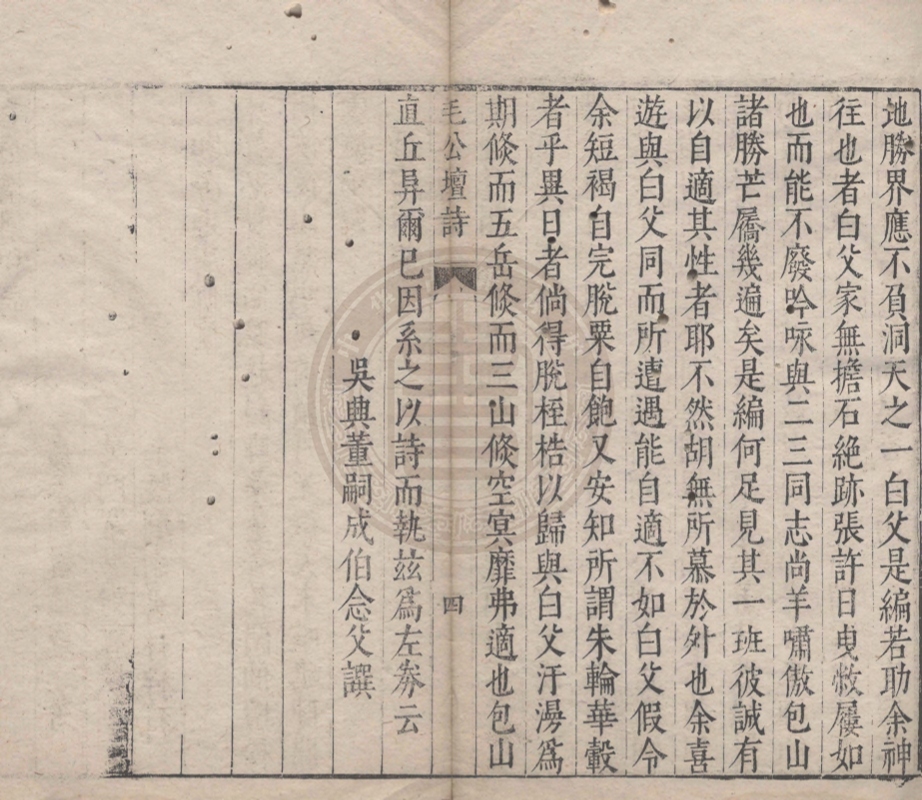 地勝界應不負洞天之一白父是編若助余神
往也者白父家無擔石絶跡張許日曳敝屨如
也而能不廢吟咏與二三同志尚羊嘯傲包山
諸勝芒屩幾遍矣是編何足見其一班彼誠有
以自適其性者耶不然胡無所慕於外也余喜
遊與白父同而所遭遇能自適不如白父假令
余短褐自完脫粟自飽又安知所謂朱輪華轂
者乎異日者倘得脫桎梏以歸與白父汗漫爲
期倐而五岳倐而三山倐空冥靡弗適也包山
毛公壇詩
四
直丘㫷爾已因系之以詩而執茲爲左券云
吳興董嗣成伯念父譔